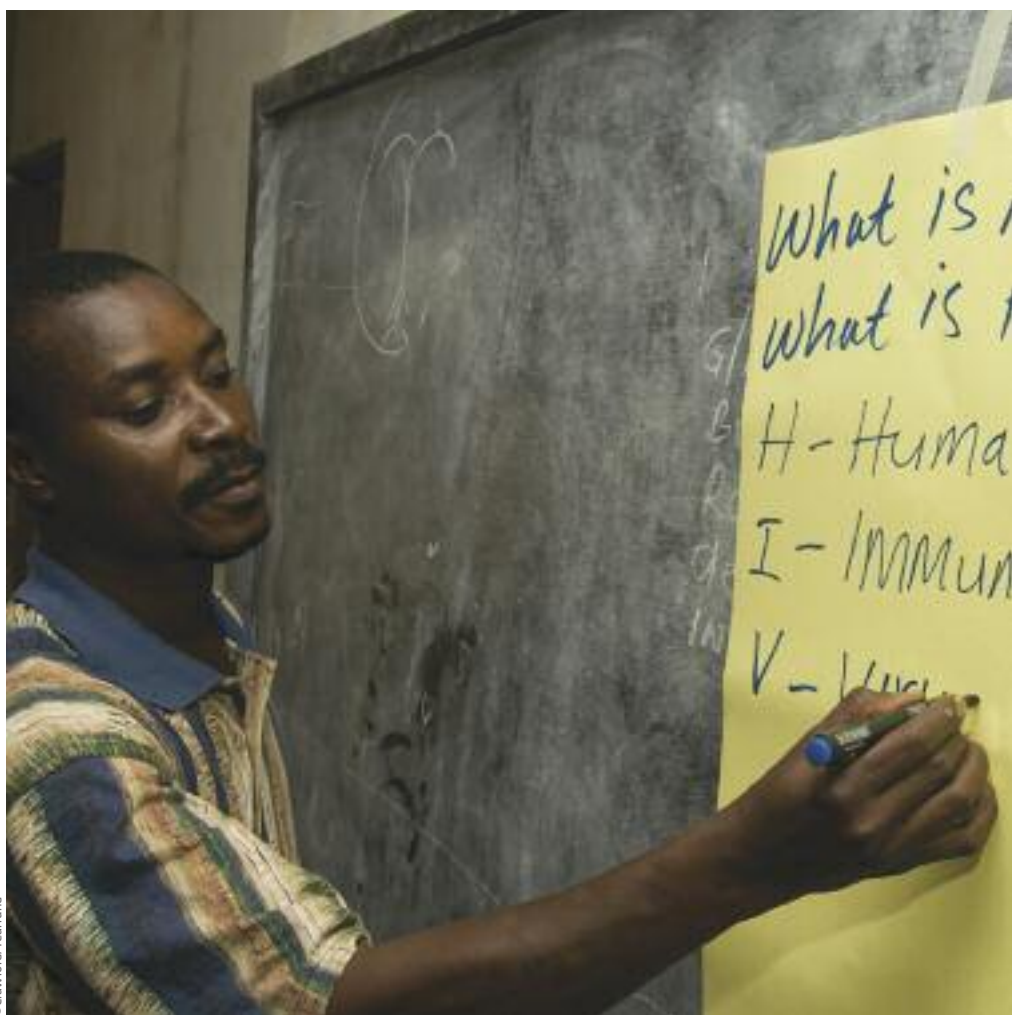 What is
what is
H - Huma
I - Immun
V - Viru